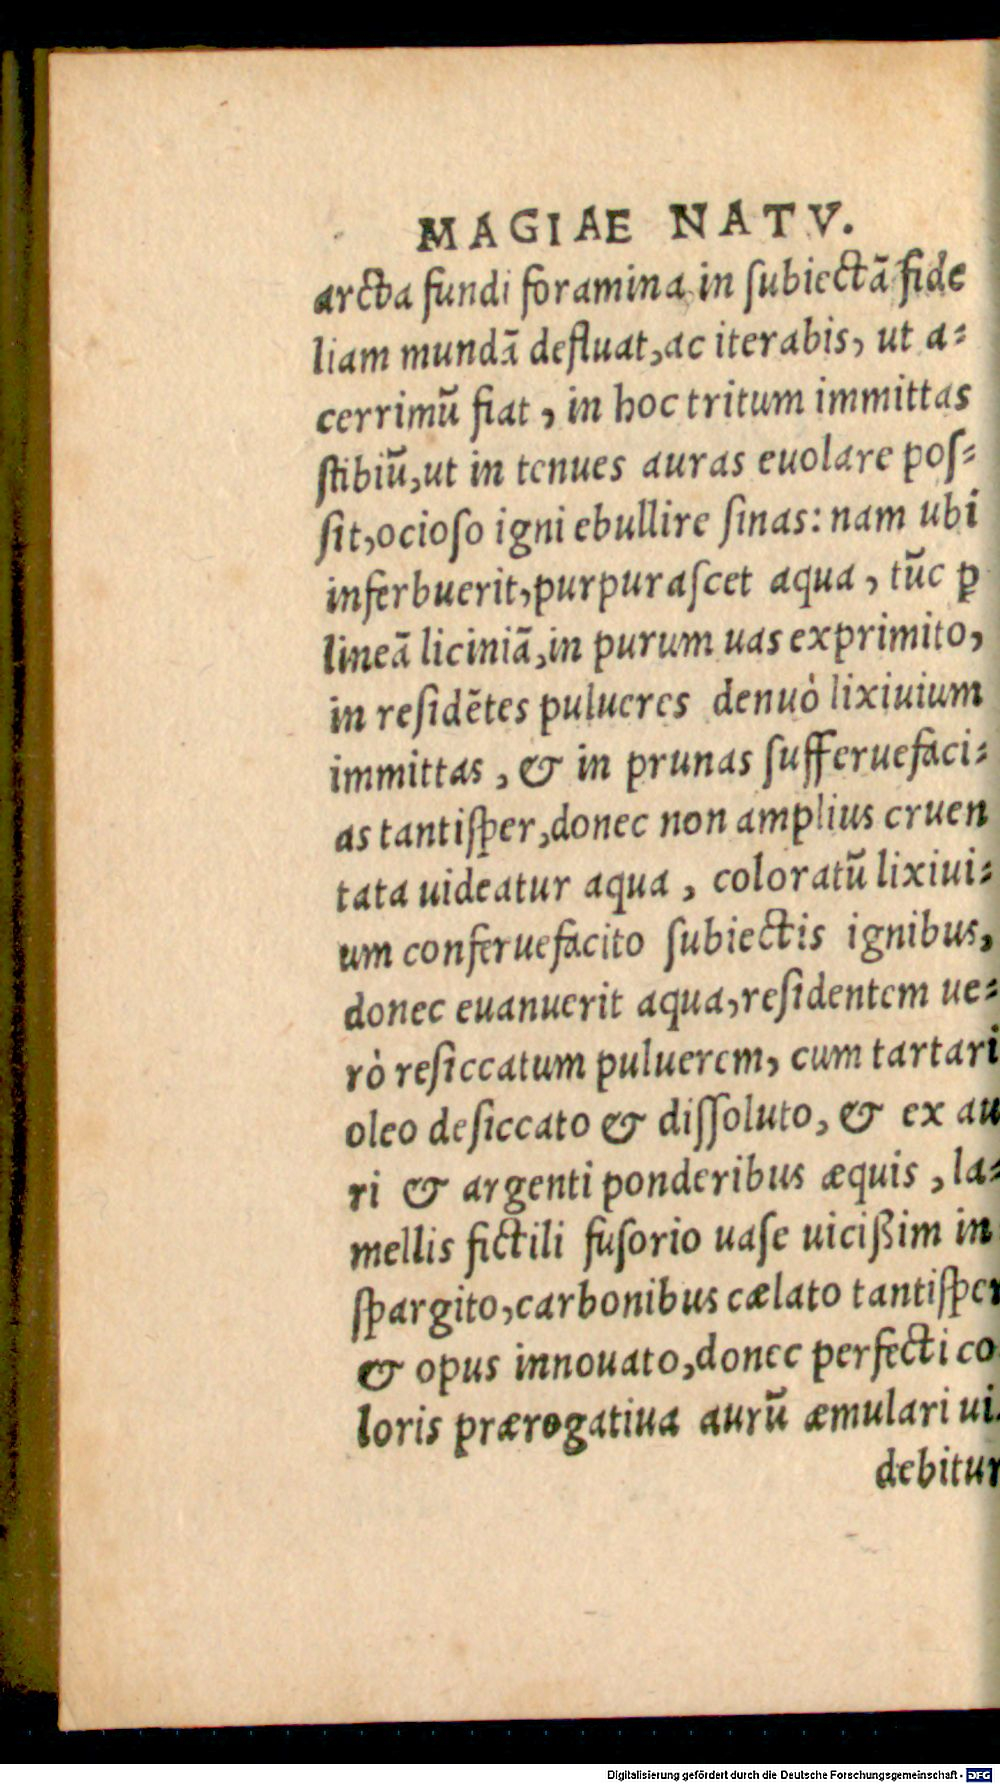 MAGIAE NATV.
arcta fundi foramina in ſubiectã fide
liam mundã defluat, ac iterabis, ut a⸗
cerrimũ fiat, in hoc tritum immittas
ſtibiũ, ut in tenues auras euolare poſ⸗
ſit, ocioſo igni ebullire ſinas: nam ubi
inferbuerit, purpuraſcet aqua, tũc ꝑ
lineã liciniã, in purum uas exprimito,
in reſidẽtes pulueres denuò lixiuium
immittas, & in prunas ſufferuefaci⸗
as tantiſper, donec non amplius cruen
tata uideatur aqua, coloratũ lixiui⸗
um conferuefacito ſubiectis ignibus,
donec euanuerit aqua, reſidentem ue⸗
rò reſiccatum puluerem, cum tartari
oleo deſiccato & diſſoluto, & ex au
ri & argenti ponderibus æquis, la⸗
mellis fictili fuſorio uaſe uicißim in
ſpargito, carbonibus cælato tantiſper
& opus innouato, donec perfecti co
loris prærogatiua aurũ æmulari ui.
debitur
Digitalisierung gefördert durch die Deutsche Forschungsgemeinschaft - DFG